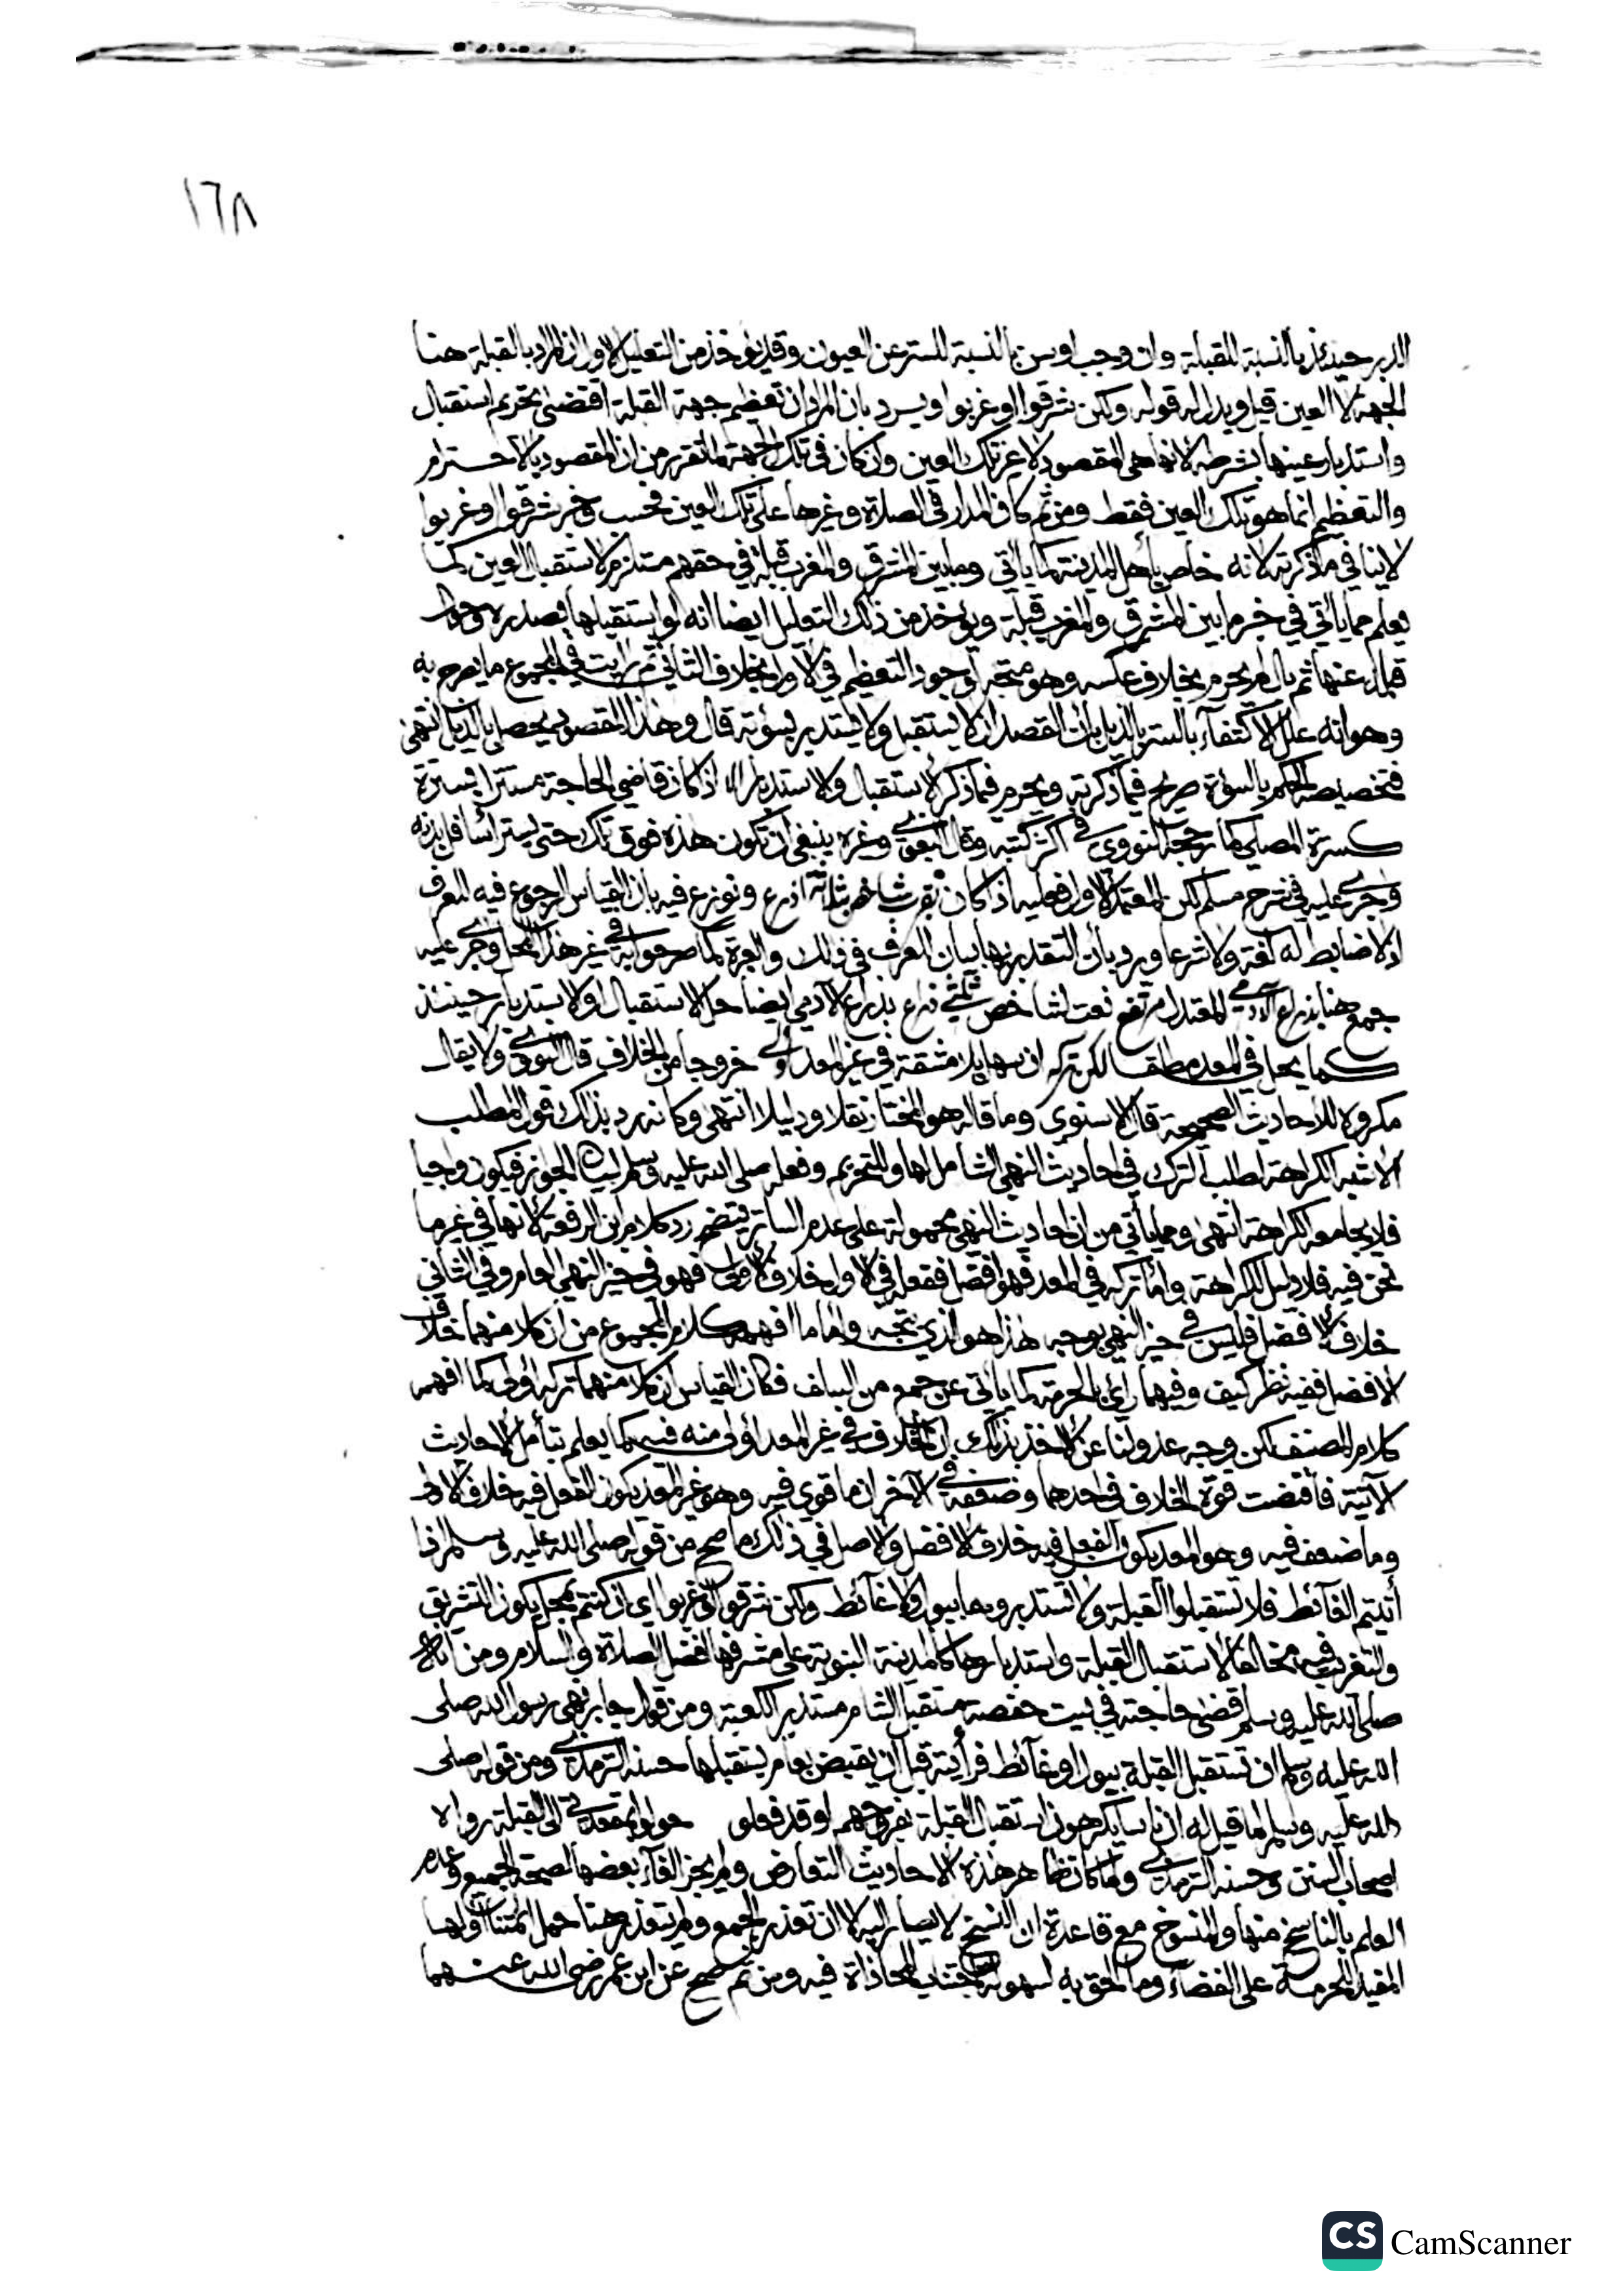 ١٦٨
الدبر حينئذ بالنسبة للقبلة وان وجب او سن بالنسبة للستر عن العيون وقد يؤخذ من التعليل الاول ان المراد بالقبلة هنا
الجهة لا العين قيل ويدل له قوله ولكن شرقوا او غربوا ويرد بان المراد ان تعظيم جهة القبلة اقتضى تحريم استقبال
واستدبار عينها بشرطه لانها هي المقصود لا غير تلك العين وان كان في تلك الجهة لما تقرر من ان المقصود بالاحترام
والتعظيم انما هو تلك العين فقط ومن ثم كان المدار في الصلاة وغيرها على تلك العين فحسب وخبر شرقوا او غربوا
لا ينافي ما ذكرته لانه خاص باهل المدينة كما ياتي وما بين المشرق والمغرب قبلة في حقهم مستلزم لاستقبال العين كما
يعلم مما ياتي في خبر ما بين المشرق والمغرب قبلة ويؤخذ من ذلك التعليل ايضا انه لو استقبلها بصدره وحول
قبله عنها ثم بال لم يحرم بخلاف عكسه وهو متجه لوجود التعظيم في الاول بخلاف الثاني ثم رايت في المجموع ما يصرح به
وهو انه علل الاكتفاء بالستر بالذيل بان القصد ان لا يستقبل ولا يستدبر بسؤته قال وهذا المقصود يحصل بالذيل انتهى
فتخصيصه الحكم بالسؤة صريح فيما ذكرته ويحرم فيما ذكر الاستقبال والاستدبار الا اذا كان قاضي الحاجة مستترا بسترة
كسترة المصلي كما رجحه النووي في اكثر كتبه وقال البغوي وغيره ينبغي ان تكون هذه فوق تلك حتى يستر اسافل بدنه
وجرى عليه في شرح مسلم لكن المعتمد الاول فعليه اذا كان بقرب شاخص بثلاثة اذرع ونوزع فيه بان القياس الرجوع فيه للعرف
اذ لا ضابط له لغة ولا شرعا ورد بان التقدير بها بيان للعرف في ذلك والعبرة كما صرحوا به في غير هذا المحل وجرى عليه
جمع هنا بذراع الادمي المعتدل مرتفع نعت لشاخص ثلثي ذراع بذراع الادمي ايضا حل الاستقبال او الاستدبار حينئذ
كما يحل في المعد مطلقا لكن تركه ان سهل بلا مشقة في غير المعد اولى خروجا من الخلاف قال النووي ولا يقال
مكروه للاحاديث الصحيحة قال الاسنوي وما قاله هو المختار نقلا ودليلا انتهى وكانه رد بذلك قول المطلب
الاشبه الكراهة لطلب الترك في احاديث النهي الشامل لها وللتحريم وفعله صلى الله عليه وسلم لبيان الجواز فيكون واجبا
فلا يجامعه الكراهة انتهى ومما ياتي من ان احاديث النهي محمولة على عدم الساتر يتضح رد كلام ابن الرفعة لانها في غير ما
نحن فيه فلا دليل للكراهة واما تركه في المعد فهو افضل ففعله في الاول خلاف الاولى فهو في حيز النهي العام وفي الثاني
خلاف الافضل فليس في حيز النهي بوجه هذا هو الذي يتجه واما ما افهمه كلام المجموع من ان كلا منهما خلاف
الافضل ففيه نظر كيف وفيهما راي بالحرمة كما ياتي عن جمع من السلف فكان القياس ان كلا منهما تركه اولى كما افهمه
كلام المصنف لكن وجه عدولنا عن الاخذ بذلك ان الخلاف في غير المعد اولى منه فيه كما يعلم بتامل الاحاديث
الاتية فاقتضت قوة الخلاف في احدهما وضعفه في الاخر ان ما قوي فيه وهو غير المعد يكون الفعل فيه خلاف الاولى
وما ضعف فيه وهو المعد يكون الفعل فيه خلاف الافضل والاصل في ذلك ما صح من قوله صلى الله عليه وسلم اذا
أتيتم الغائط فلا تستقبلوا القبلة ولا تستدبروها ببول ولا غائط ولكن شرقوا او غربوا اي ان كنتم بمحل يكون التشريق
والتغريب فيه مخالفا لاستقبال القبلة واستدبارها كالمدينة النبوية على مشرفها افضل الصلاة والسلام ومن انه
صلى الله عليه وسلم قضى حاجته في بيت حفصة مستقبل الشام مستدبر الكعبة ومن قول جابر نهى رسول الله صلى
الله عليه وسلم ان تستقبل القبلة ببول او غائط فرأيته قبل ان يقبض بعام يستقبلها حسنه الترمذي ومن قوله صلى
الله عليه وسلم لما قيل له ان ناسا يكرهون استقبال القبلة بفروجهم اوقد فعلوا حولوا بمقعدتي الى القبلة رواه
اصحاب السنن وحسنه الترمذي ولما كان ظاهر هذه الاحاديث التعارض ولم يجز الغاء بعضها لصحة الجميع وعدم
العلم بالناسخ منها والمنسوخ مع قاعدة ان النسخ لا يصار اليه الا ان تعذر الجمع ولم يتعذر هنا حمل ائمتنا اولها
المفيد للحرمة على الفضاء وما الحق به لسهولة اجتناب المحاذاة فيه ومن ثم صح عن ابن عمر رضي الله عنهما
CS CamScanner